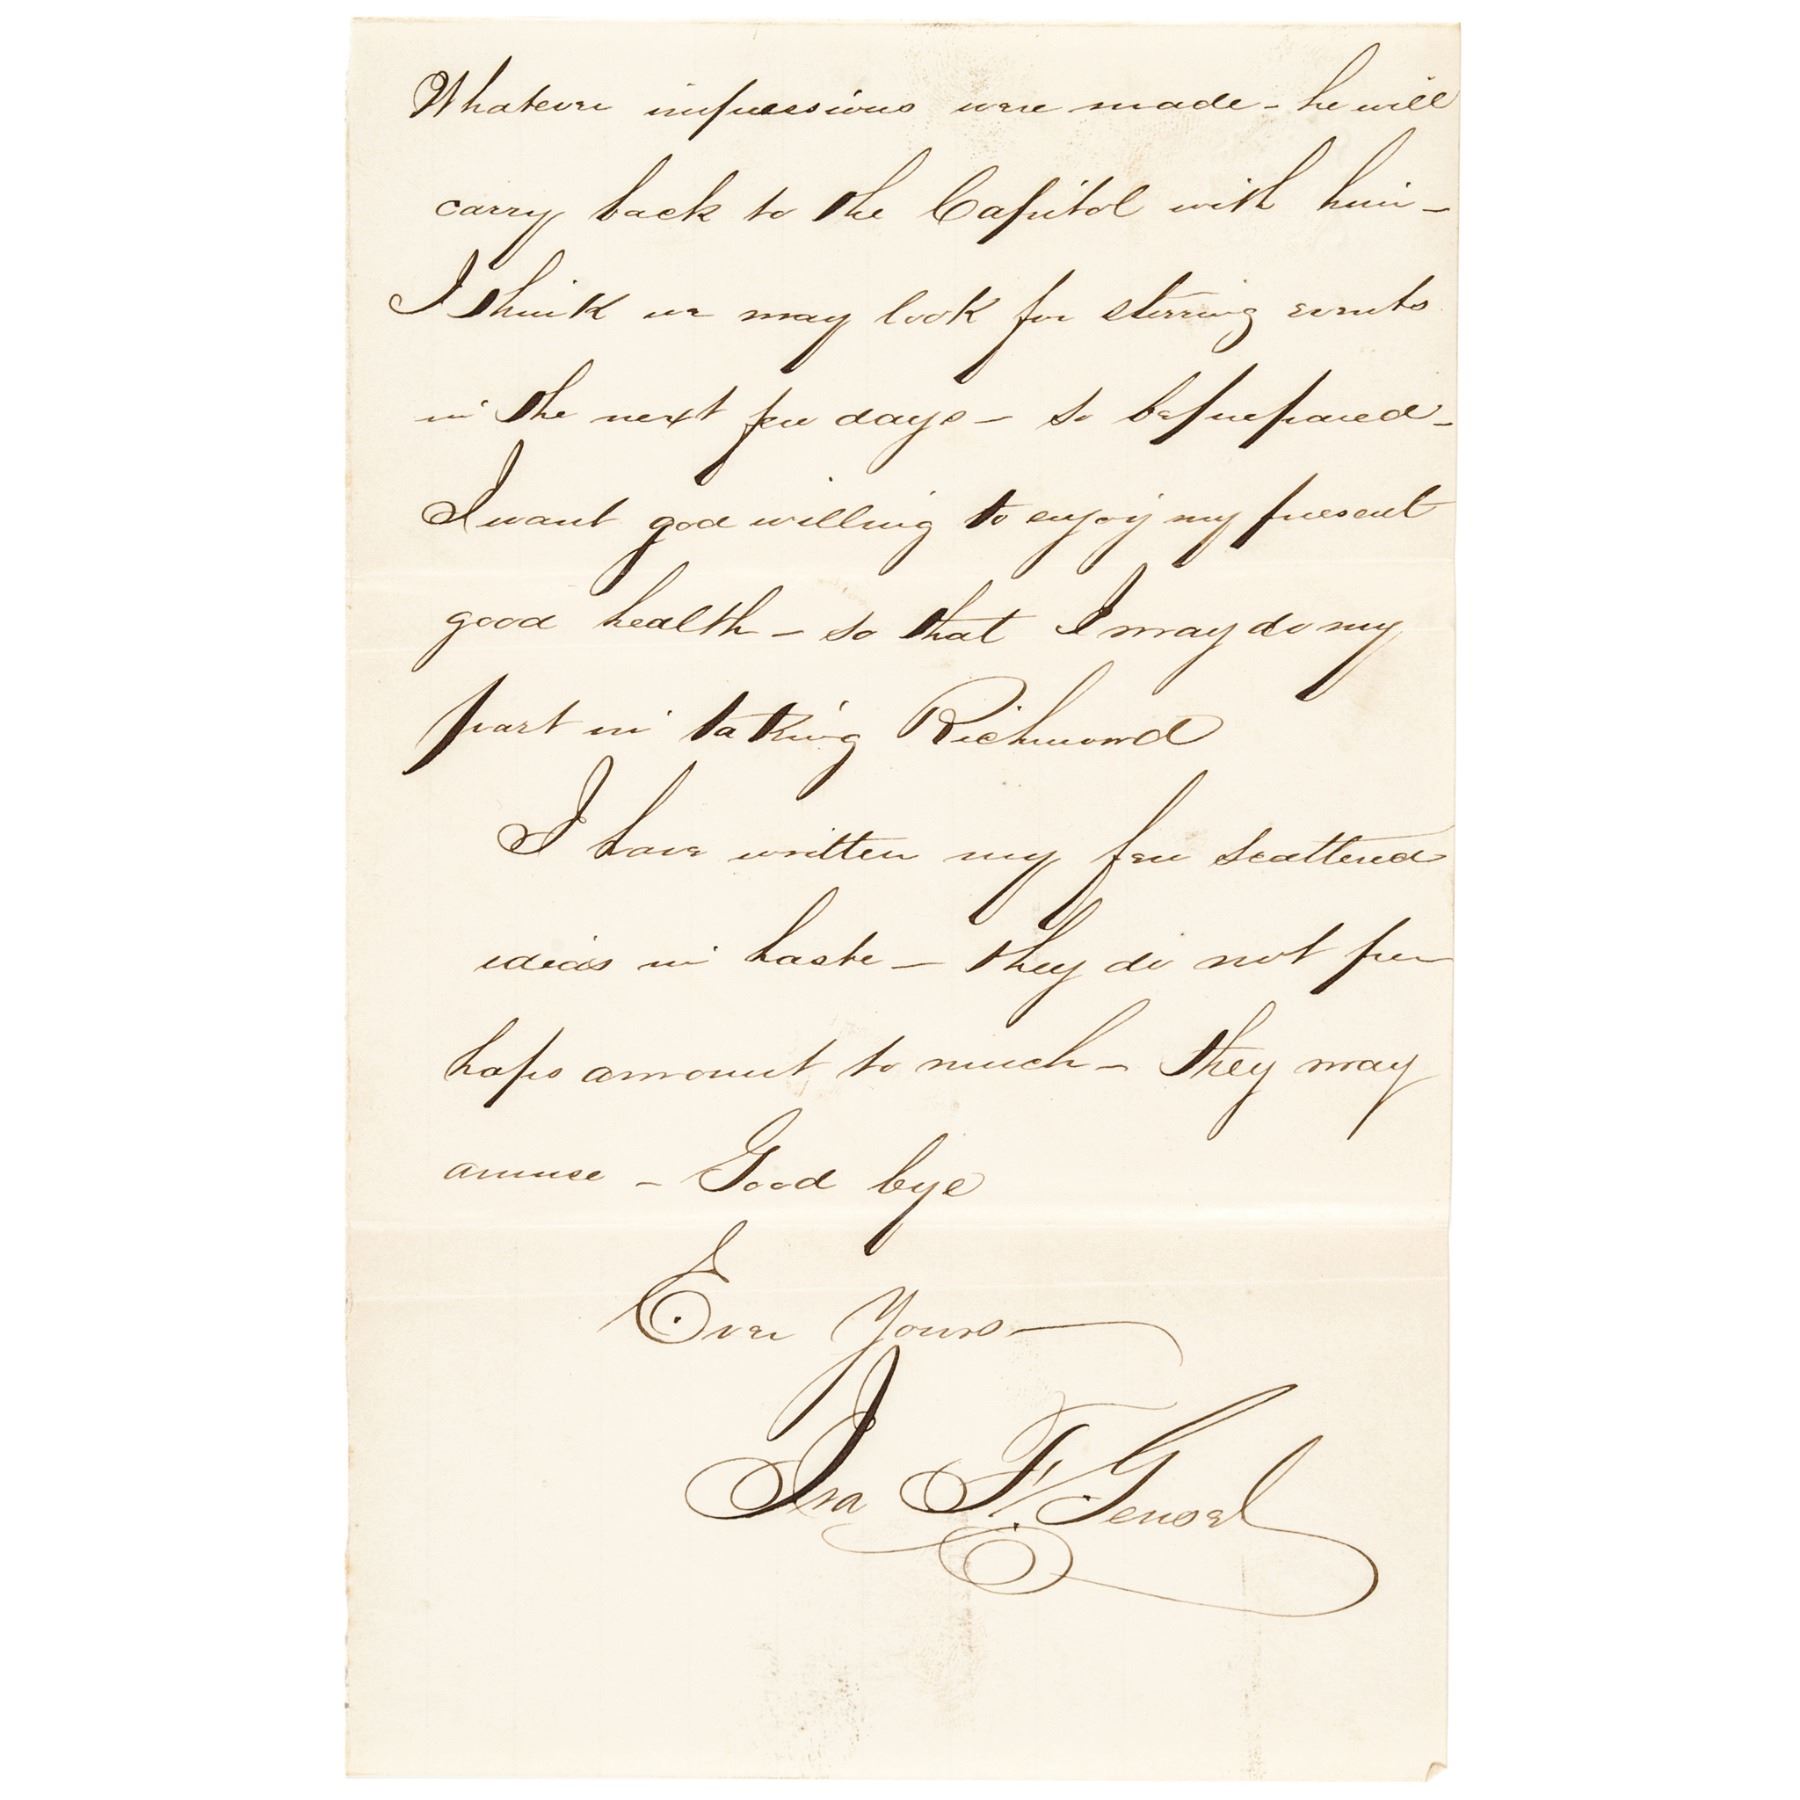 Whatever impressions were made - he will
carry back to the Capitol with him -
I think we may look for sterring events
in the next few days - so be prepared -
I want god willing to enjoy my present
good health - so that I may do my
part in taking Richmond
I have written my few scattered
ideas in haste - they do not per
haps amount to much - they may
amuse - Good bye
Ever Yours
Ira F. Gensel